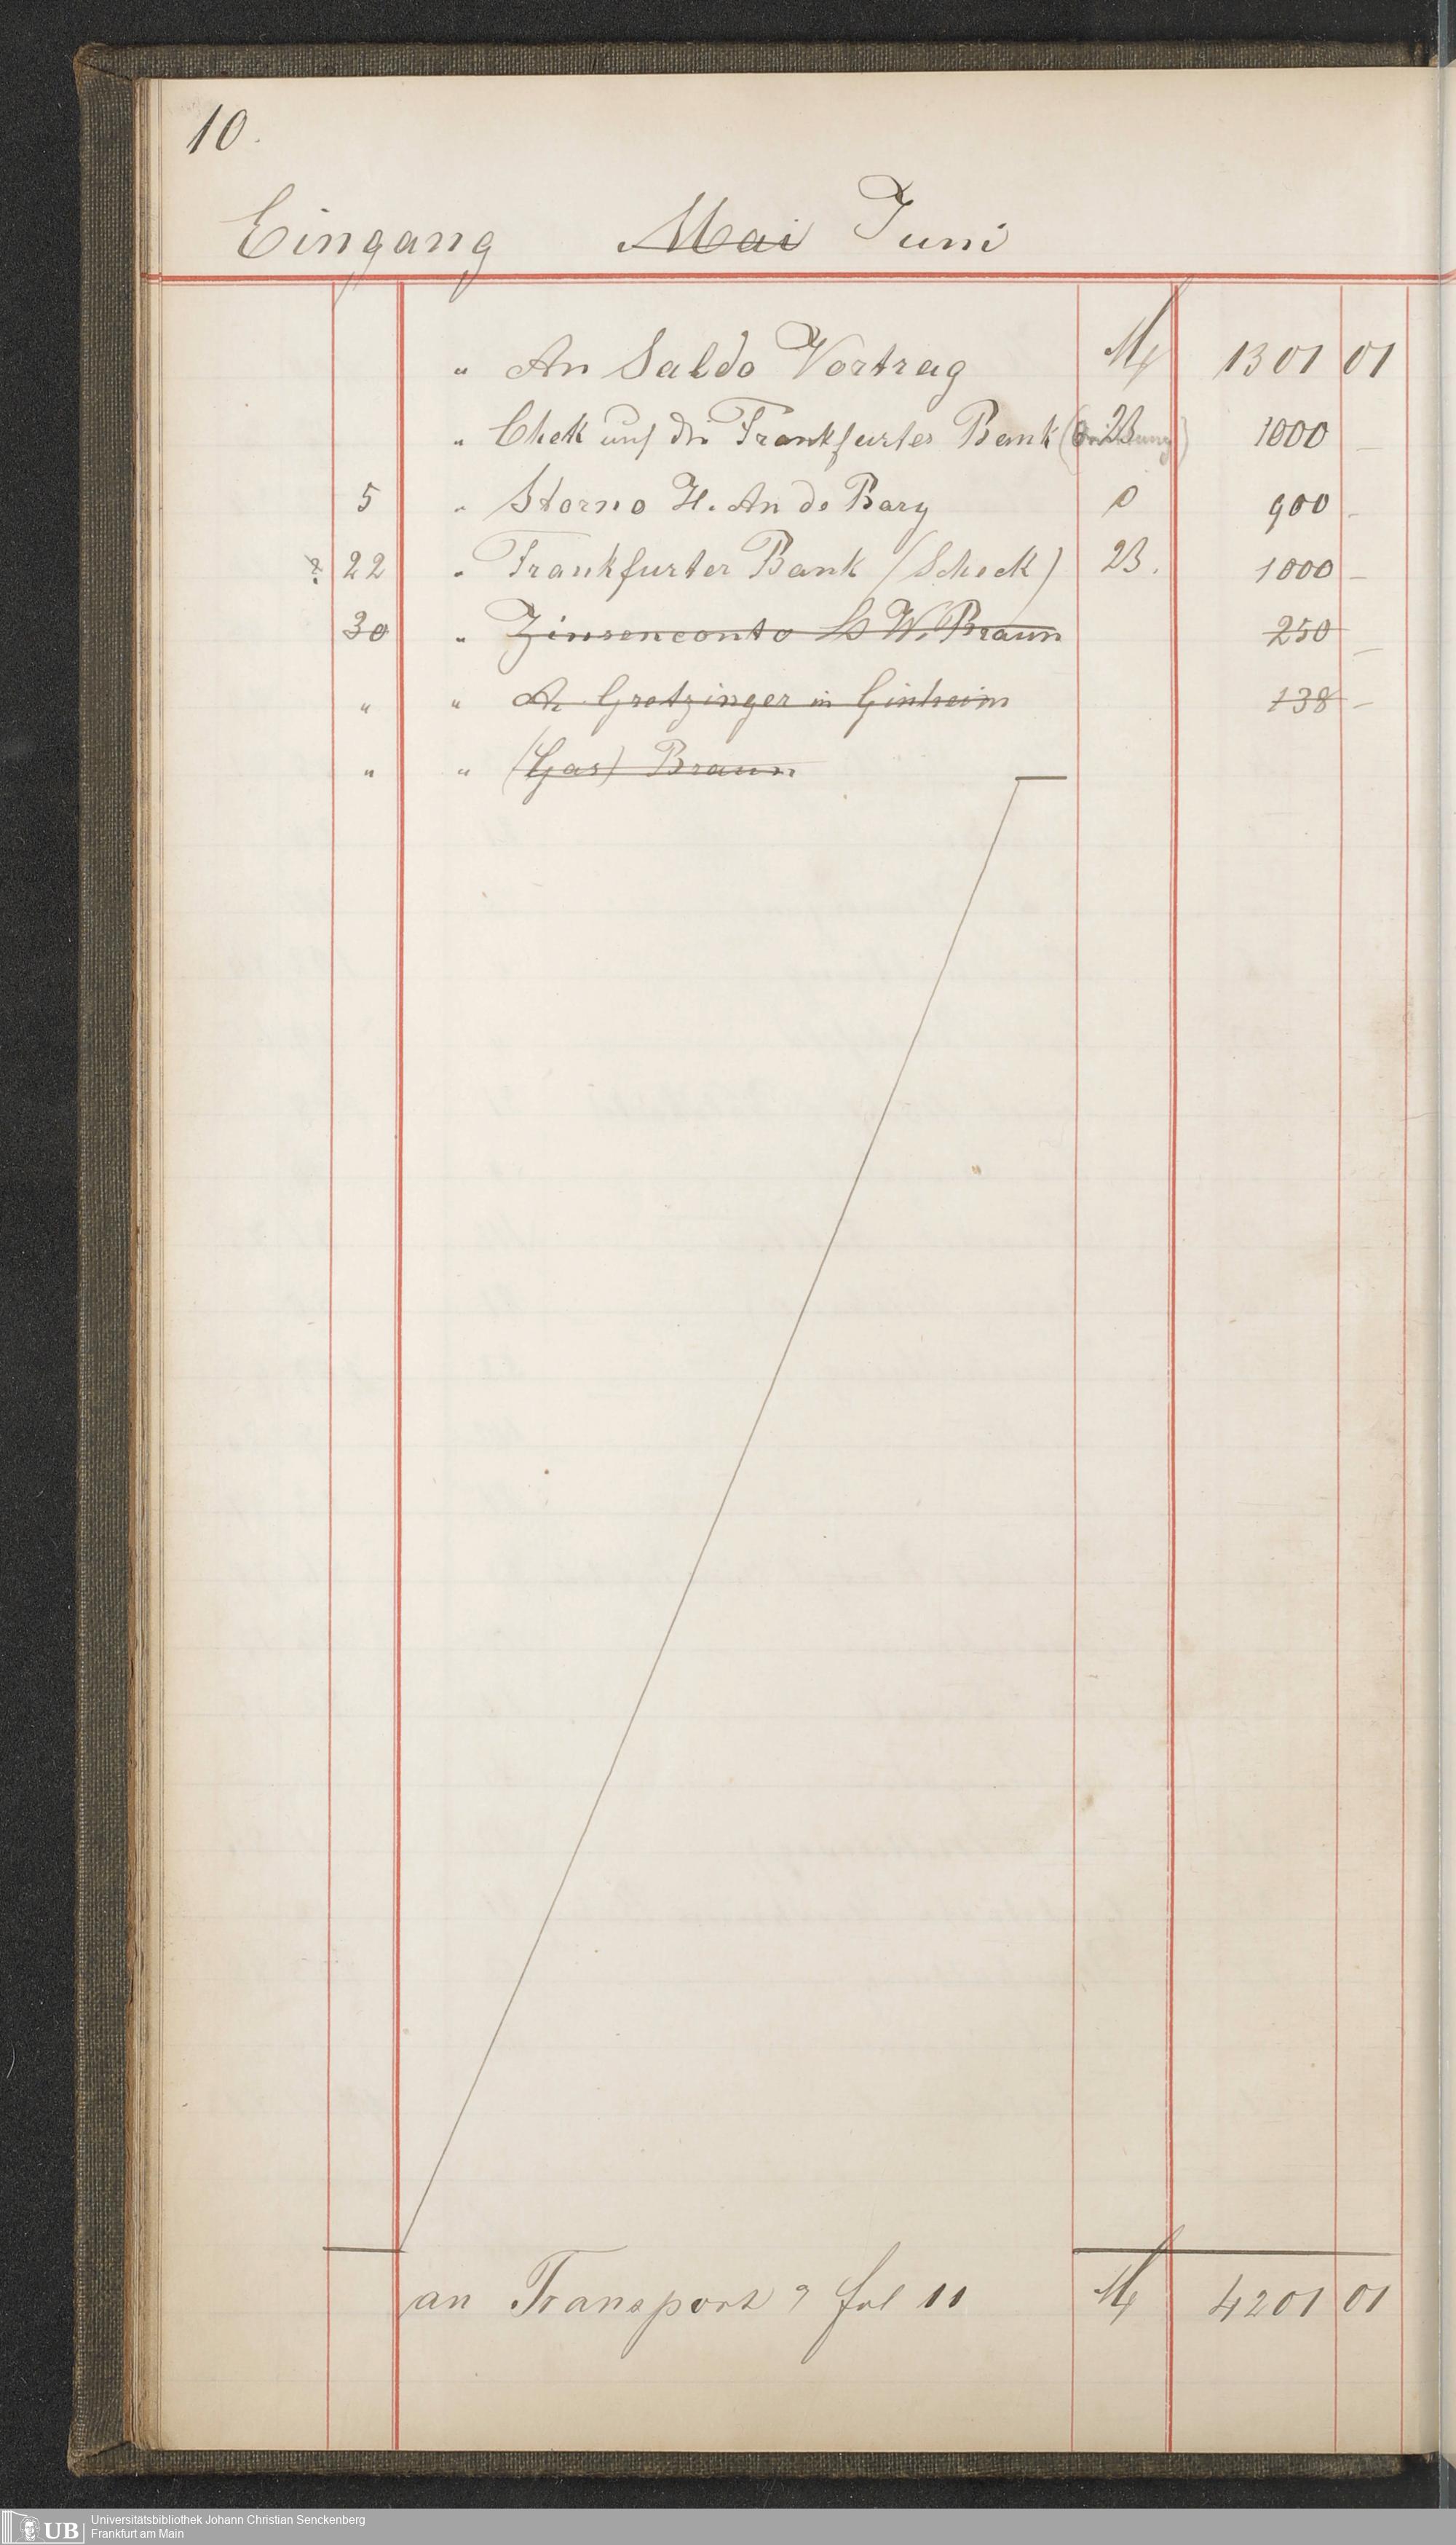 10.
Eingang Mai Juni
" An Saldo Vortrag M 1301 01
" Chek auf die Frankfurter Bank 23 1000 –
5 " Storno H. An de Bary 0 900 –
? 22 " Frankfurter Bank (Scheck) 23. 1000 –
30 " Zinsenconto W. Braun 250 –
" " A. Gretzinger in Ginheim 138 –
" " (Gas) Braun
an Transport fol 11 M 4201 01
UB Universitätsbibliothek Johann Christian Senckenberg
Frankfurt am Main